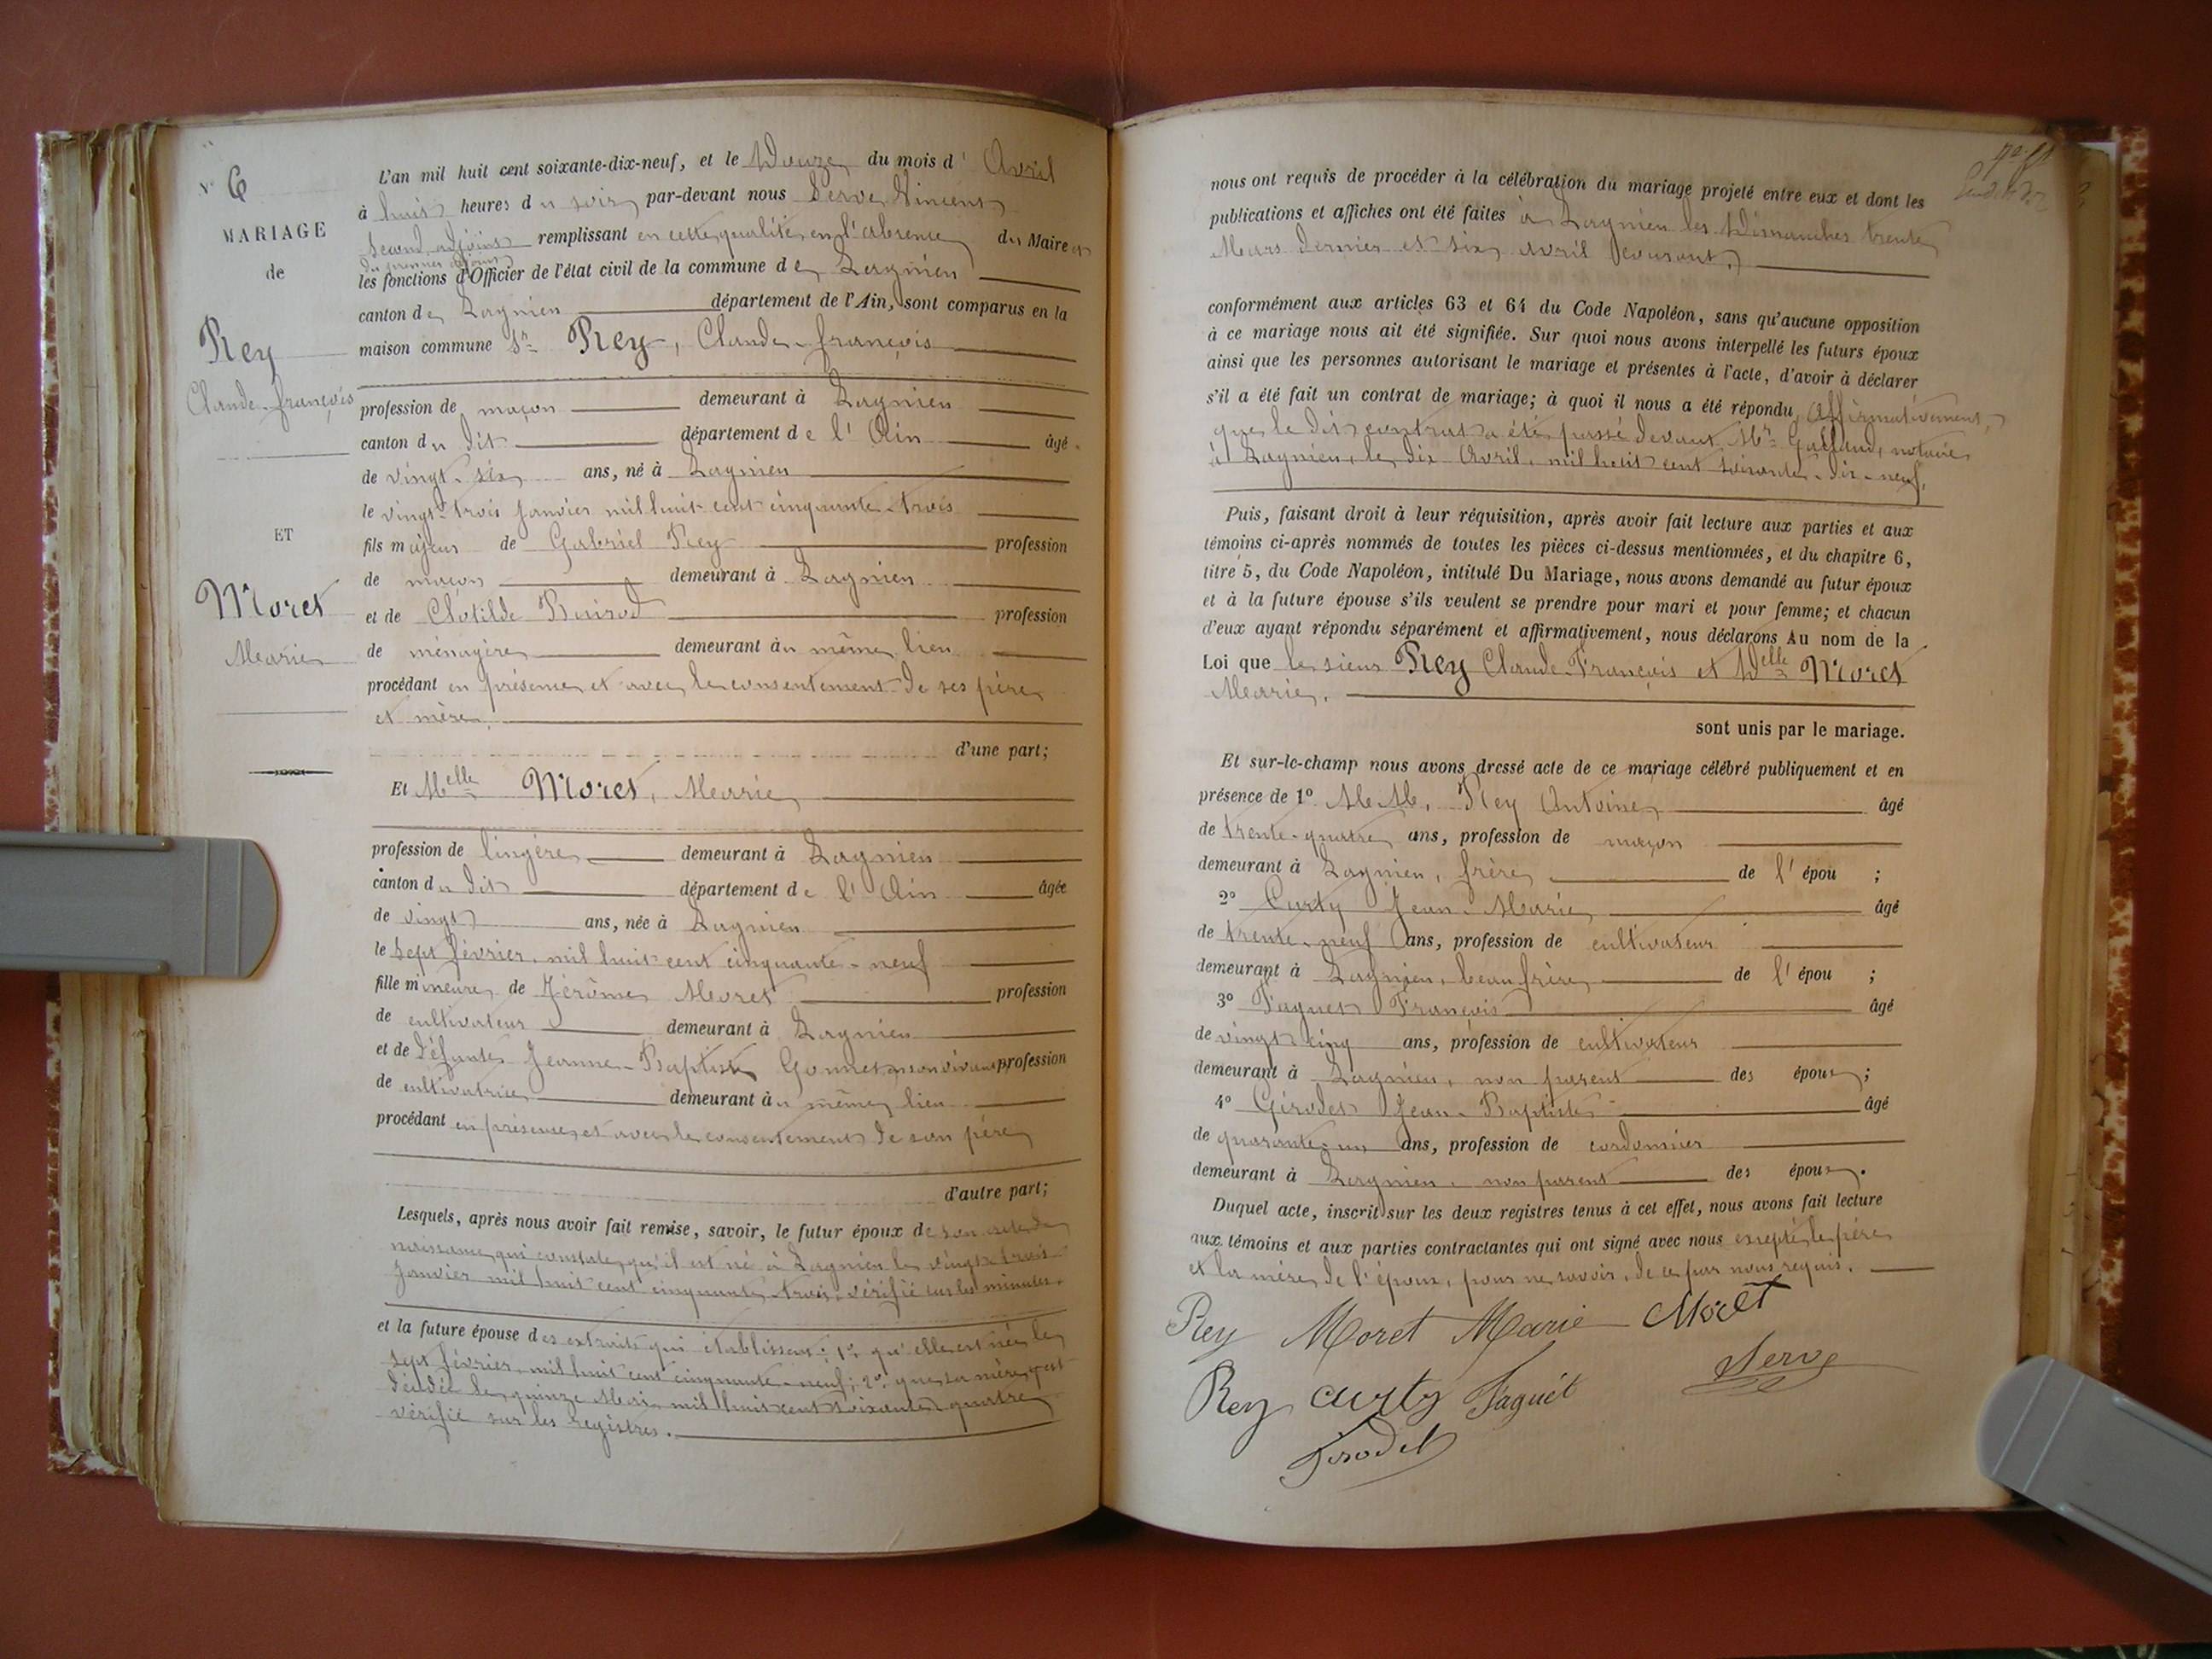 N° 6
MARIAGE
de
Rey
Claude-françois
ET
Moret
Marie
L'an mil huit cent soixante-dix-neuf, et le Douze du mois d' Avril
à huit heures du soir par-devant nous Serve Vincent
Second adjoint remplissant en cette qualité en l'absence du Maire et
du premier adjoint
les fonctions d'Officier de l'état civil de la commune de Lagnieu
canton de Lagnieu département de l'Ain, sont comparus en la
maison commune Sr Rey, Claude-françois
profession de maçon demeurant à Lagnieu
canton du dit département de l'Ain âgé
de vingt-six ans, né à Lagnieu
le vingt-trois Janvier mil huit cent cinquante-trois
fils majeur de Gabriel Rey profession
de maçon demeurant à Lagnieu
et de Clotilde profession
de ménagère demeurant au même lieu
procédant en présence et avec le consentement de ses père
et mère.
d'une part;
Et Melle Moret, Marie
profession de lingère demeurant à Lagnieu
canton du dit département de l'Ain âgée
de vingt ans, née à Lagnieu
le sept février, mil huit cent cinquante-neuf
fille mineure de Jérôme Moret profession
de cultivateur demeurant à Lagnieu
et de défunte Jeanne-Baptiste Gonnet en son vivant profession
de cultivatrice demeurant au même lieu
procédant en présence et avec le consentement de son père
d'autre part;
Lesquels, après nous avoir fait remise, savoir, le futur époux de son acte de
naissance qui constate qu'il est né à Lagnieu le vingt-trois
Janvier mil huit cent cinquante-trois, vérifié sur les minutes.
et la future épouse des extraits qui établissent : 1° qu'elle est née le
sept février mil huit cent cinquante-neuf; 2° que sa mère y est
décédée le quinze mil huit cent soixante quatre
vérifié sur les registres.
nous ont requis de procéder à la célébration du mariage projeté entre eux et dont les
publications et affiches ont été faites à Lagnieu les Dimanches trente
Mars dernier et six avril courant.
conformément aux articles 63 et 64 du Code Napoléon, sans qu'aucune opposition
à ce mariage nous ait été signifiée. Sur quoi nous avons interpellé les futurs époux
ainsi que les personnes autorisant le mariage et présentes à l'acte, d'avoir à déclarer
s'il a été fait un contrat de mariage; à quoi il nous a été répondu affirmativement,
que le dit contrat a été passé devant Mre notaire
à Lagnieu, le dix Avril, mil huit cent soixante-dix-neuf.
Puis, faisant droit à leur réquisition, après avoir fait lecture aux parties et aux
témoins ci-après nommés de toutes les pièces ci-dessus mentionnées, et du chapitre 6,
titre 5, du Code Napoléon, intitulé Du Mariage, nous avons demandé au futur époux
et à la future épouse s'ils veulent se prendre pour mari et pour femme; et chacun
d'eux ayant répondu séparément et affirmativement, nous déclarons Au nom de la
Loi que le sieur Rey Claude-François et Delle Moret
Marie.
sont unis par le mariage.
Et sur-le-champ nous avons dressé acte de ce mariage célébré publiquement et en
présence de 1° MM. Rey Antoine âgé
de trente-quatre ans, profession de maçon
demeurant à Lagnieu, frère de l'épou ;
2° Curty Jean-Marie âgé
de trente-neuf ans, profession de cultivateur
demeurant à Lagnieu, beau frère de l'épou ;
3° Faguet François âgé
de vingt cinq ans, profession de cultivateur
demeurant à Lagnieu, non parent des époux ;
4° Girodet Jean-Baptiste âgé
de quarante-un ans, profession de cordonnier
demeurant à Lagnieu, non parent des époux .
Duquel acte, inscrit sur les deux registres tenus à cet effet, nous avons fait lecture
aux témoins et aux parties contractantes qui ont signé avec nous excepté le père
et la mère de l'époux, pour ne savoir, de ce par nous requis.
Rey Moret Marie Moret
Rey Curty Faguét Serve
Girodet